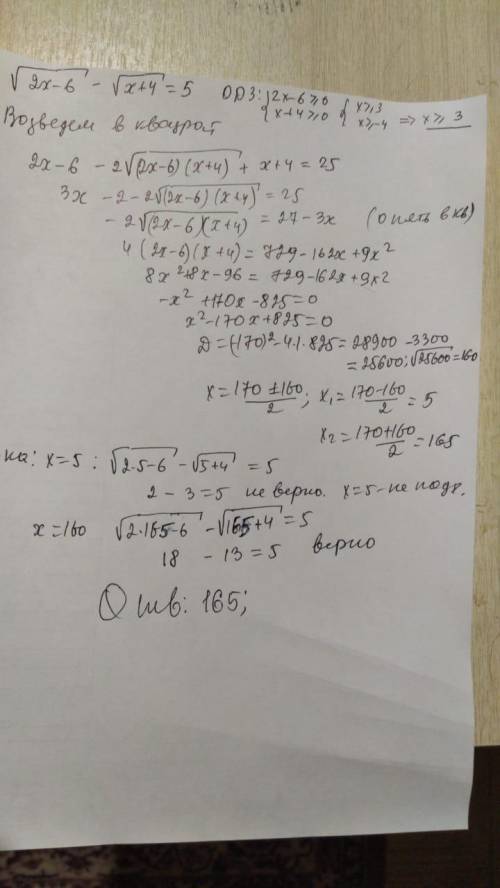 √(2x-6) - √(x+4) = 5 ОДЗ: {2x-6 ≥ 0 {x ≥ 3
{x+4 ≥ 0 {x ≥ -4 => x ≥ 3
Возведем в квадрат
2x-6 - 2√((2x-6)(x+4)) + x+4 = 25
3x - 2 - 2√((2x-6)(x+4)) = 25
- 2√((2x-6)(x+4)) = 27 - 3x (опять в кв)
4(2x-6)(x+4) = 729 - 162x + 9x²
8x² + 8x - 96 = 729 - 162x + 9x²
-x² + 170x - 825 = 0
x² - 170x + 825 = 0
D = (-170)² - 4·1·825 = 28900 - 3300
= 25600; √25600 = 160
x = (170 ± 160)/2; x₁ = (170-160)/2 = 5
x₂ = (170+160)/2 = 165
ка: x=5 : √(2·5-6) - √(5+4) = 5
2 - 3 = 5 не верно. x=5 - не подх.
x=160 √(2·165-6) - √(165+4) = 5
18 - 13 = 5 верно
Отв: 165;